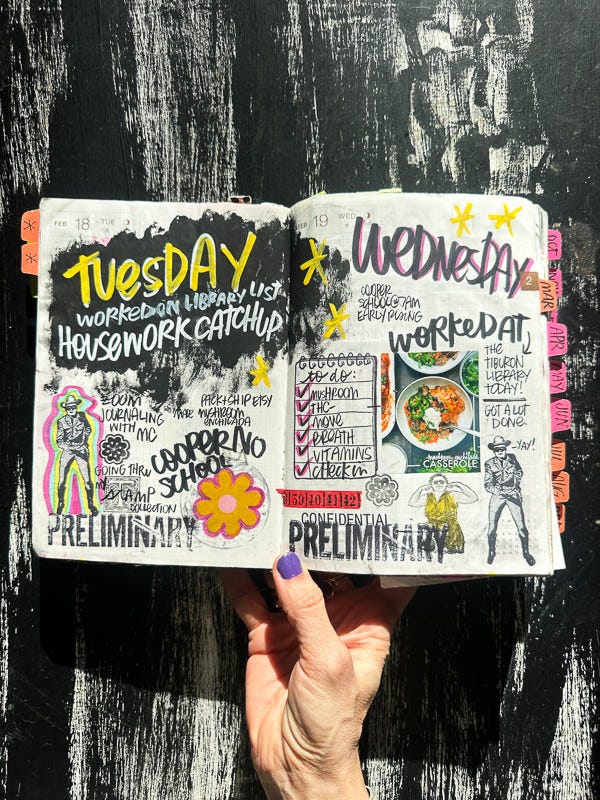 FEB 18 TUE
TUESDAY
WORKED ON LIBRARY LIST
HOUSEWORK CATCHUP
ZOOM
JOURNALING
WITH MC
GOING THRU
MY
STAMP
COLLECTION
PACK + SHIP ETSY
MADE MUSHROOM
ENCHILADA
COOPER NO
SCHOOL
PRELIMINARY
FEB 19 WED
WEDNESDAY
COOPER
SCHOOL@7AM
EARLY
WORKED AT
THE
TIBURON
LIBRARY
TODAY!
GOT A LOT
DONE.
-YAY!
to do:
MUSHROOM
THC
MOVE
BREATH
VITAMINS
CHECK IN
mushroom enchilada
CASSEROLE
39 40 41 42
CONFIDENTIAL
PRELIMINARY
2
OCT
MAR
APR
MAY
JUN
JUL
AUG